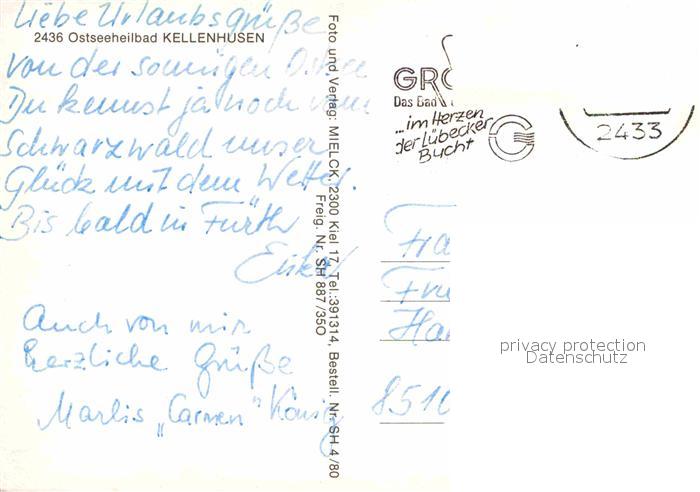 Liebe Urlaubsgrüße
2436 Ostseeheilbad KELLENHUSEN
von der sonnigen Ostsee
Du kennst ja noch vom
Schwarzwald unser
Glück mit dem Wetter.
Bis bald in Fürth
Auch von mir
herzliche Grüße
Marlis „Carmen“ König
Foto und Verlag: MIELCK, 2300 Kiel 17, Tel.: 391314, Bestell. Nr. SH 4/80
Freig. Nr. SH 887/350
GRO
Das Bad
...im Herzen
der Lübecker
Bucht
2433
Fra
Fra
Ha
8510
privacy protection
Datenschutz